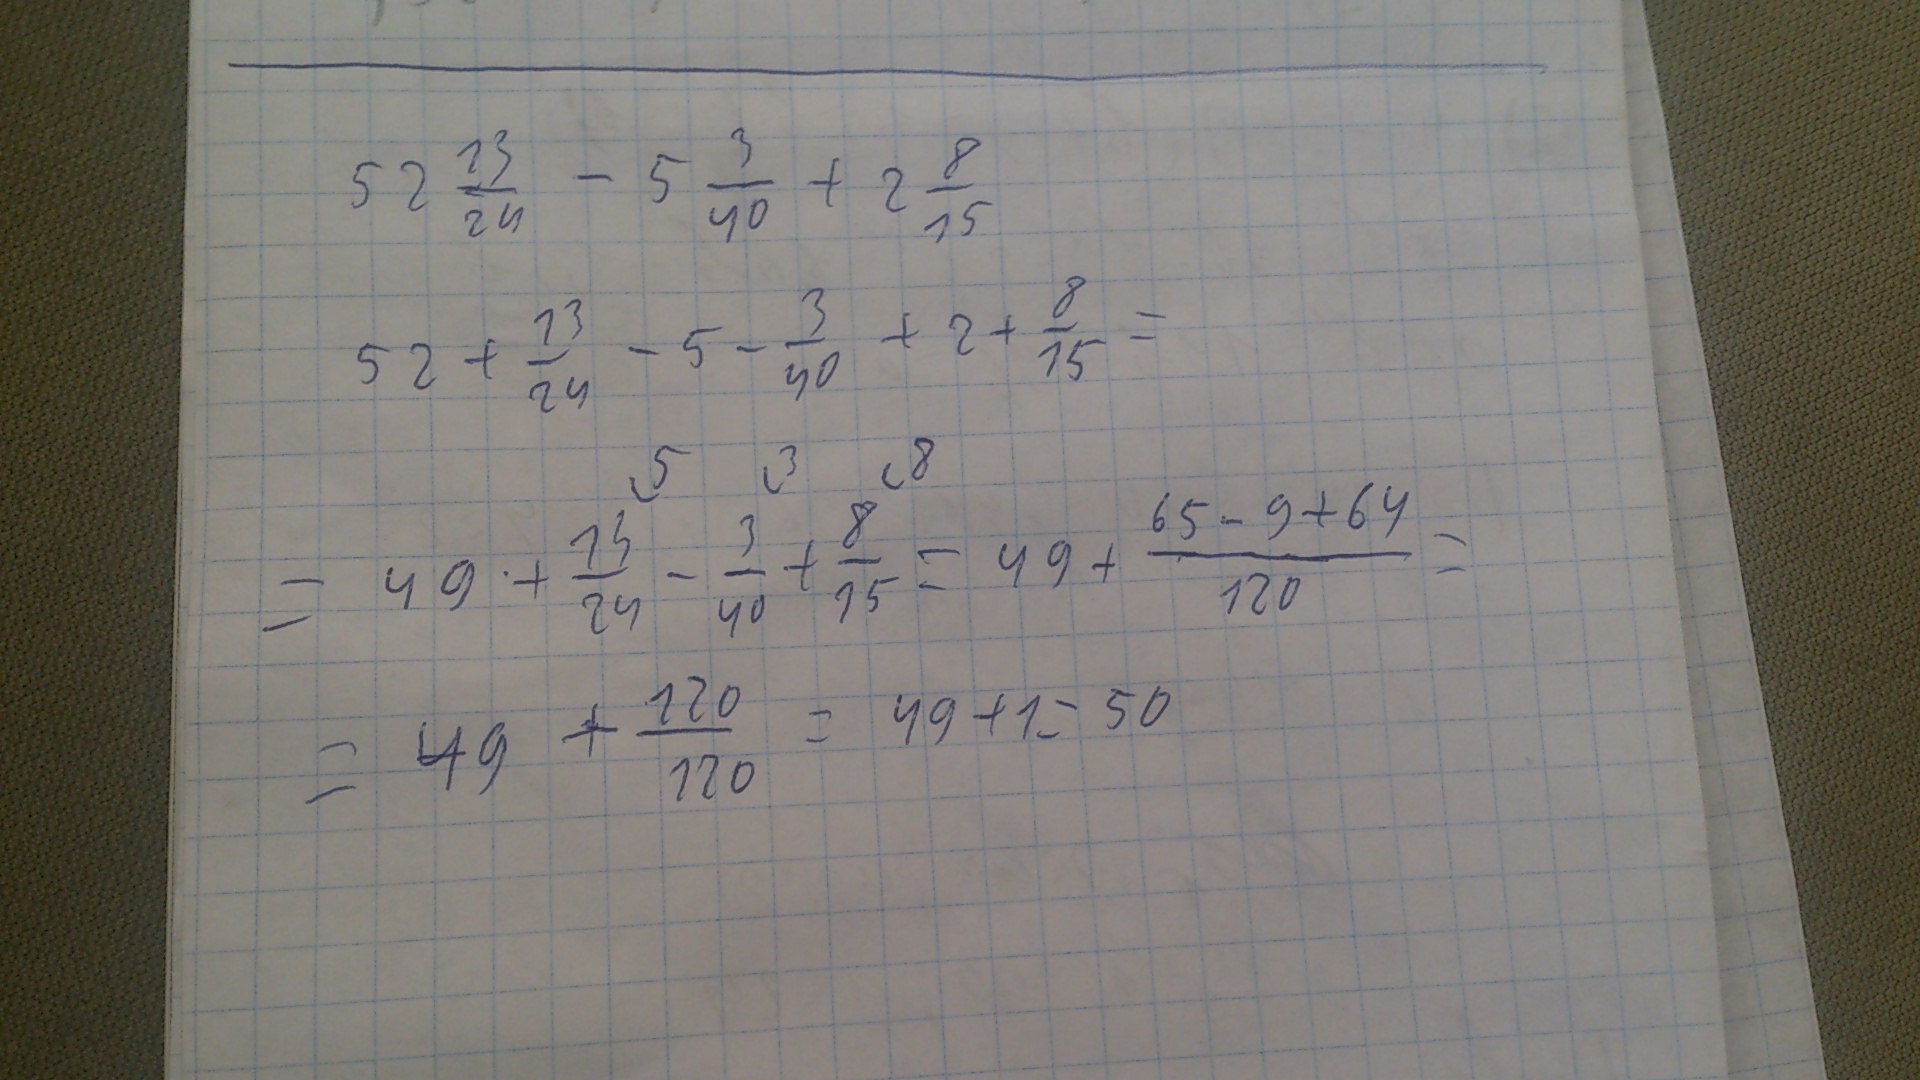 52 13/24 - 5 3/40 + 2 8/15
52 + 13/24 - 5 - 3/40 + 2 + 8/15 =
5 3 8
= 49 + 13/24 - 3/40 + 8/15 = 49 + (65 - 9 + 64)/120 =
= 49 + 120/120 = 49 + 1 = 50